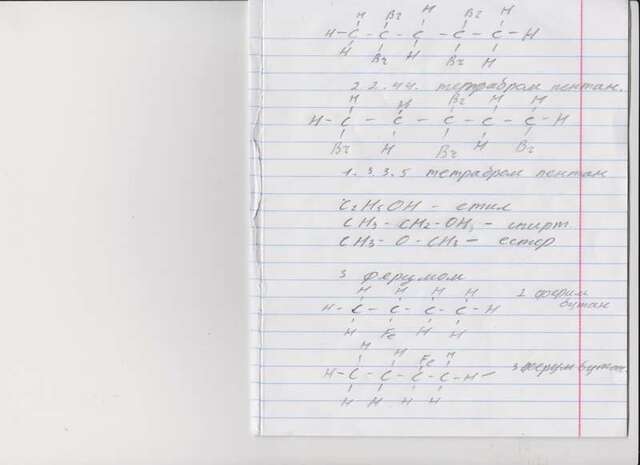 H Br H Br H
H - C - C - C - C - C - H
H Br H Br H
2.2.4.4. тетрабром пентан.
H H Br H H
H - C - C - C - C - C - H
Br H Br H Br
1.3.3.5 тетрабром пентан
C2H5OH - етил
CH3 - CH2 - OH - спирт
CH3 - O - CH3 - естер
З ферумом
H H H H
H - C - C - C - C - H
H Fe H H
2 ферум
бутан
H H Fe H
H - C - C - C - C - H -
H H H H
3 ферум бутан.